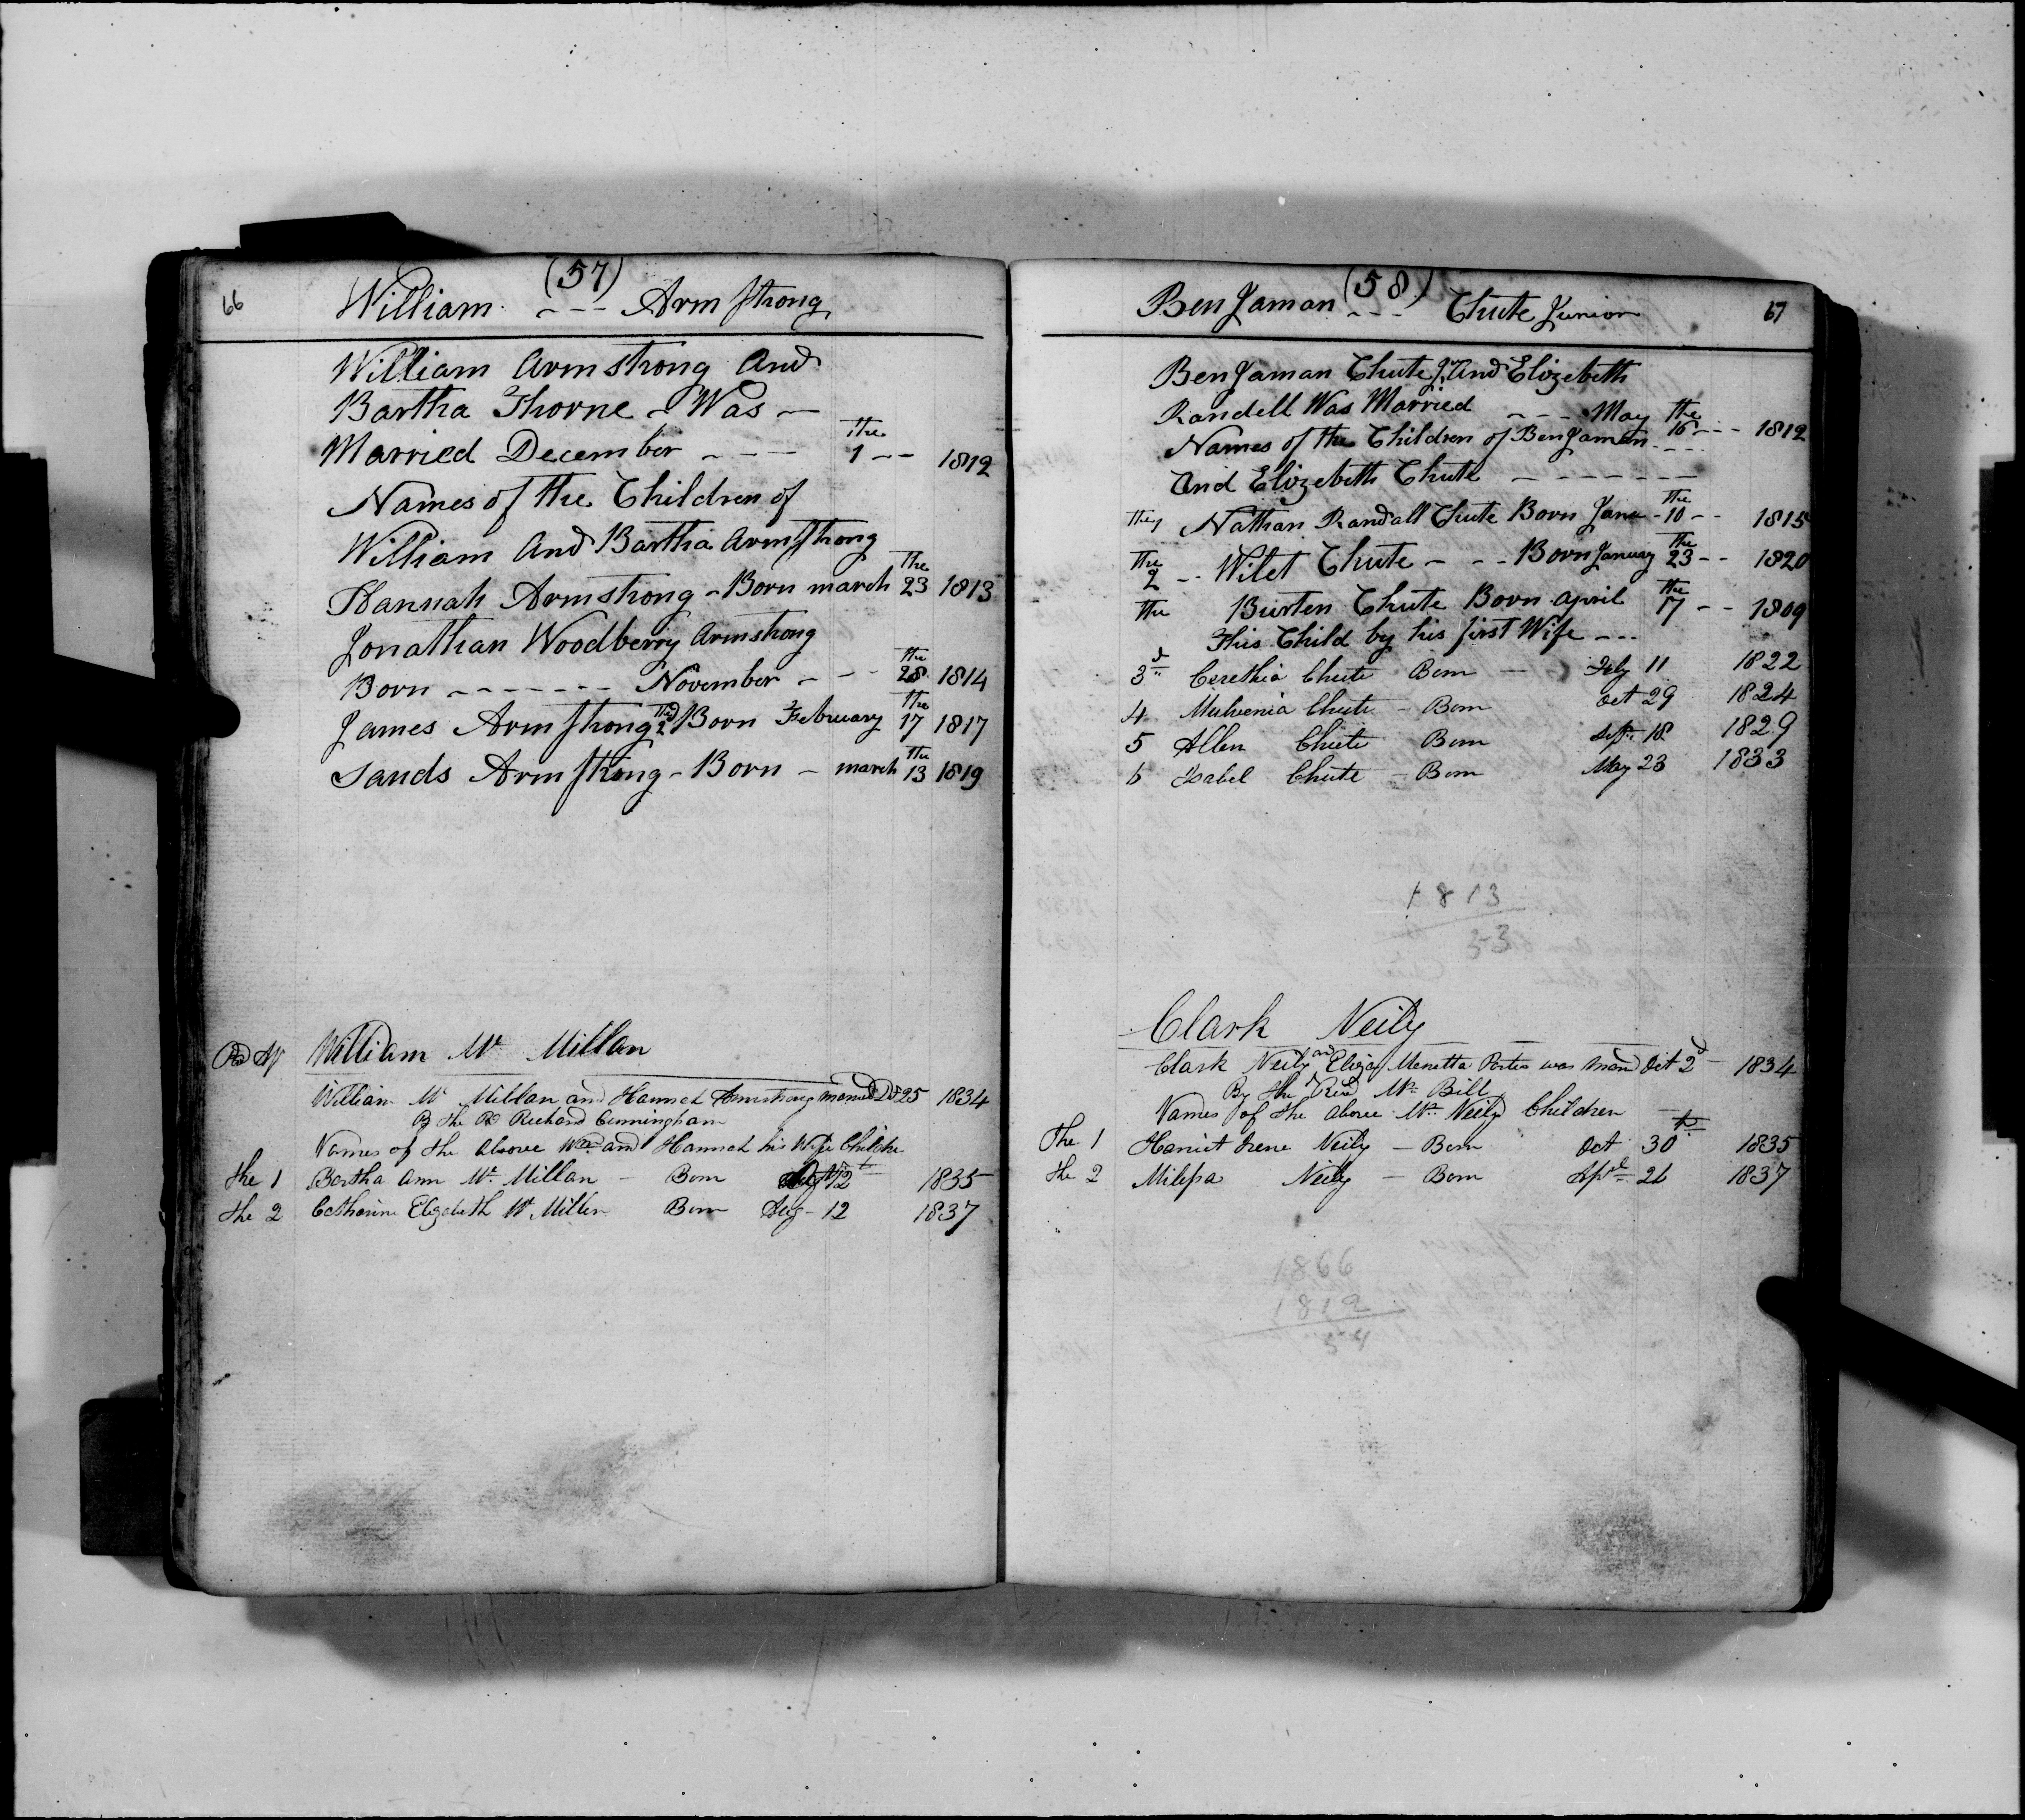 66
(57)
William --- Armstrong
William Armstrong And
Bartha Thorne - Was -
Married December - - - the 1 -- 1812
Names of the Children of
William And Bartha Armstrong
Hannah Armstrong - Born march the 23 1813
Jonathan Woodberry Armstrong
Born ------- November - - - the 28 1814
James Armstrong 2nd Born February the 17 1817
Sands Armstrong - Born - march the 13 1819
William Mc Millan
William Mc Millan and Hannah Armstrong married 25 1834
By the Rd Richard Cunningham
Names of the Above Wm and Hannah his Wife Childre
the 1 Bartha Ann Mc Millan - Born 12 1835
the 2 Catharine Elizabeth Mc Millen Born Aug - 12 1837
67
(58)
BenJaman --- Chute Junior
BenJaman Chute Jr And Elizebeth
Randell Was Married - - - May the 16 --- 1812
Names of the Children of BenJamen
And Elizebeth Chute - - - - - - -
the 1 Nathan Randall Chute Born Jane - the 10 -- 1815
the 2 -- Wilet Chute - - - Born January the 23 -- 1820
the Burten Chute Born april the 17 -- 1809
This Child by his first Wife ---
3d Cerethia Chute Born - July 11 1822
4 Mulvenia Chute - Born Oct 29 1824
5 Allen Chute Born Sept 18 1829
6 Isabel Chute - Born May 23 1833
1813
53
Clark Neily
Clark Neily and Eliza Menetta Porter was Mard Oct 2d 1834
By the Revd Mr Bill
Names of the above Mr Neily Children
The 1 Harriet Irene Neily - Born Oct 30th 1835
the 2 Milissa Neily - Born Apl 26 1837
1866
1812
54